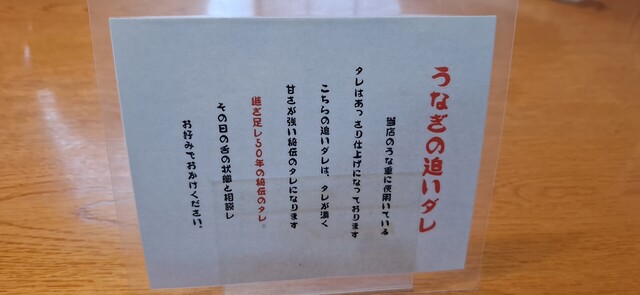 うなぎの追いダレ
当店のうな重に使用いている
タレはあっさり仕上げになっております
こちらの追いダレは、タレが濃く
甘さが強い秘伝のタレになります
継ぎ足し50年の秘伝のタレ。
その日の舌の状態と相談し
お好みでおかけください。